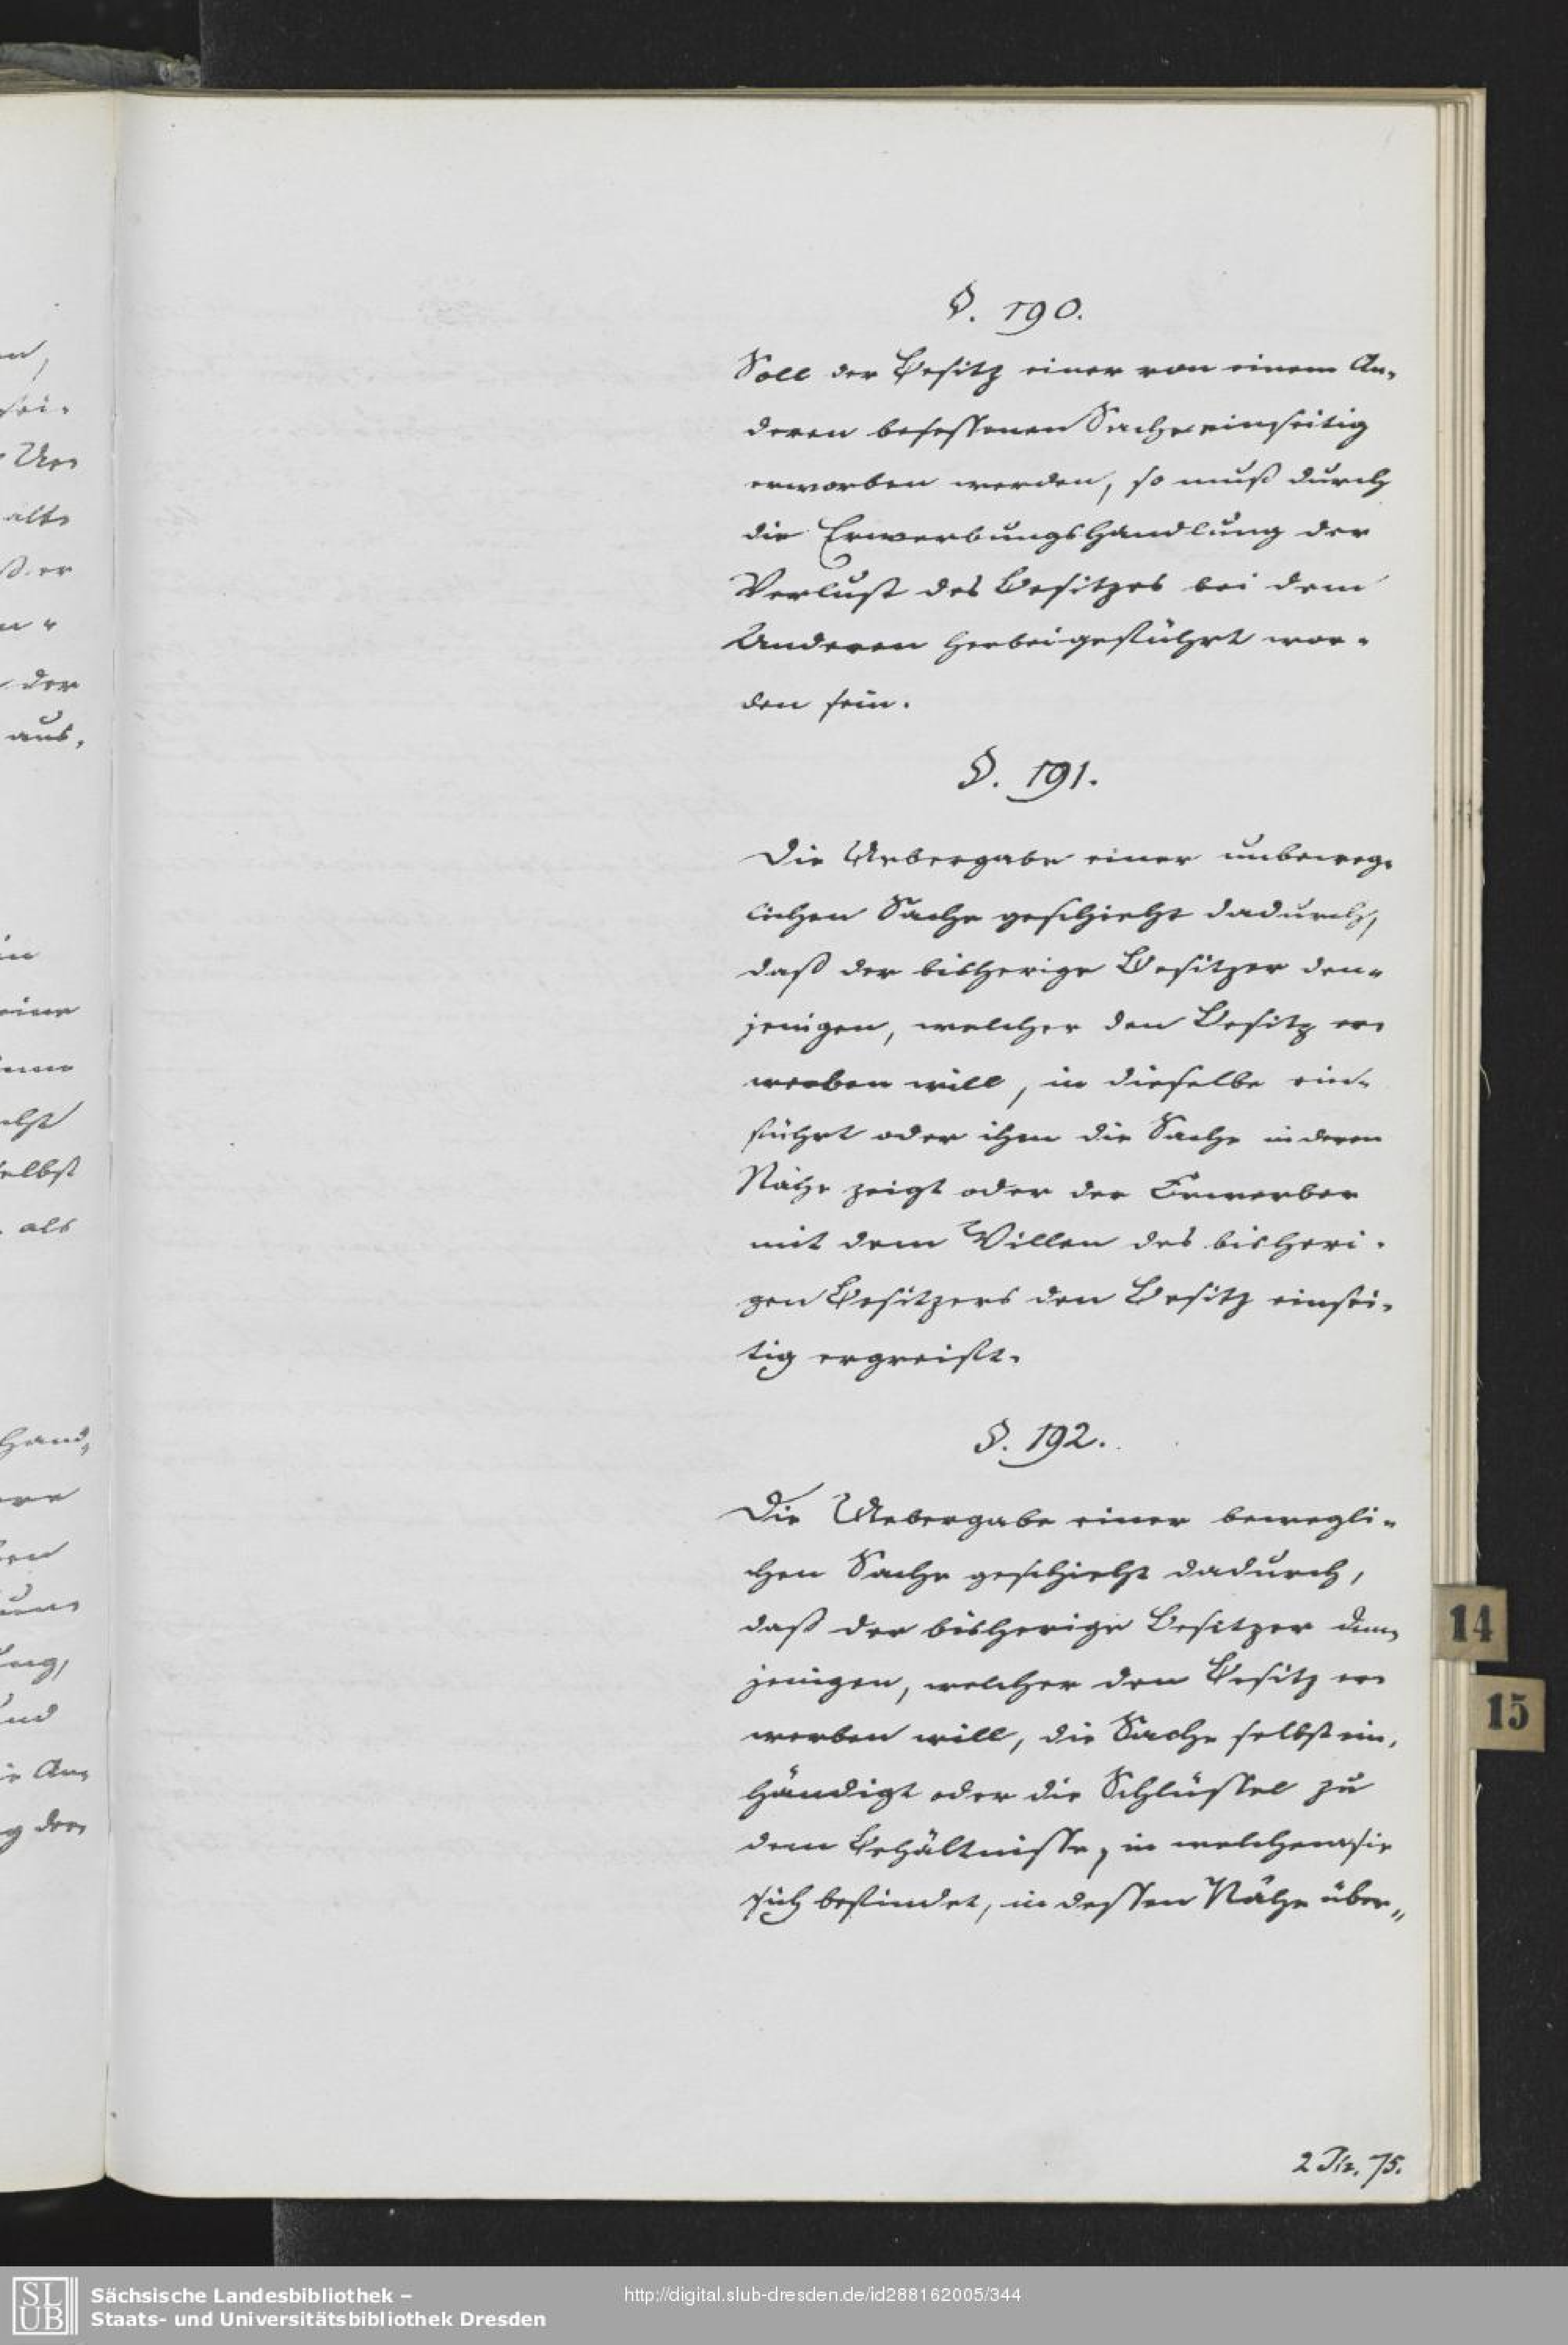 §. 190.
Soll der Besitz einer von einem An-
deren besessenen Sache einseitig
erworben werden, so muß durch
die Erwerbungshandlung der
Verlust des Besitzes bei dem
Anderen herbeigeführt wor-
den sein.
§. 191.
Die Uebergabe einer unbeweg-
lichen Sache geschieht dadurch,
daß der bisherige Besitzer den-
jenigen, welcher den Besitz er-
werben will, in dieselbe ein-
führt oder ihm die Sache in deren
Nähe zeigt oder der Erwerber
mit dem Willen des bisheri-
gen Besitzers den Besitz einsei-
tig ergreift.
§. 192.
Die Uebergabe einer bewegli-
chen Sache geschieht dadurch,
daß der bisherige Besitzer dem-
jenigen, welcher den Besitz er-
werben will, die Sache selbst ein-
händigt oder die Schlüssel zu
dem Behältnisse, in welchem sie
sich befindet, in dessen Nähe über-
14
15
75.
SLUB
Sächsische Landesbibliothek –
Staats- und Universitätsbibliothek Dresden
http://digital.slub-dresden.de/id288162005/344